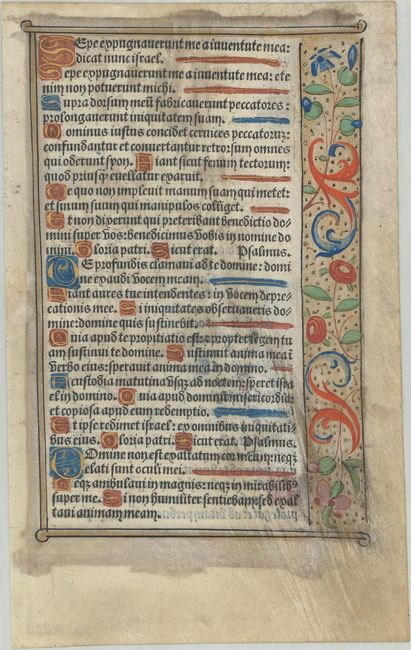 Sepe expugnaverunt me a iuventute mea:
dicat nunc israel.
Sepe expugnaverunt me a iuventute mea: ete
nim non potuerunt michi.
Supra dorsum meū fabricaverunt peccatores:
prolongaverunt iniquitatem suam.
Dominus iustus concidet cervices peccatorū:
confundantur et convertantur retrorsum omnes
qui oderunt syon. Fiant sicut fenum tectorum:
quod priusqȝ evellatur exaruit.
De quo non implevit manum suam qui metet:
et sinum suum qui manipulos colliget.
Et non dixerunt qui preteribant benedictio do-
mini super vos: benediximus vobis in nomine do
mini. Gloria patri. Sicut erat. Psalmus.
De profundis clamavi ad te domine: domi
ne exaudi vocem meam.
Fiant aures tue intendentes: in vocem depre-
cationis mee. Si iniquitates observaveris do-
mine: domine quis sustinebit.
Quia apud te propitiatio est: et propter legem tu
am sustinui te domine. Sustinuit anima mea ī
verbo eius: speravit anima mea in domino.
A custodia matutina vsqȝ ad noctem: speret isra
el in domino. Quia apud dominū misericordia:
et copiosa apud eum redemptio.
Et ipse redimet israel: ex omnibus iniquitati
bus eius. Gloria patri. Sicut erat. Psalmus.
Domine non est exaltatum cor meum: neqȝ
elati sunt oculi mei.
Neqȝ ambulavi in magnis: neqȝ in mirabilibȝ
super me. Si non humiliter sentiebam: sed exal
tavi animam meam.